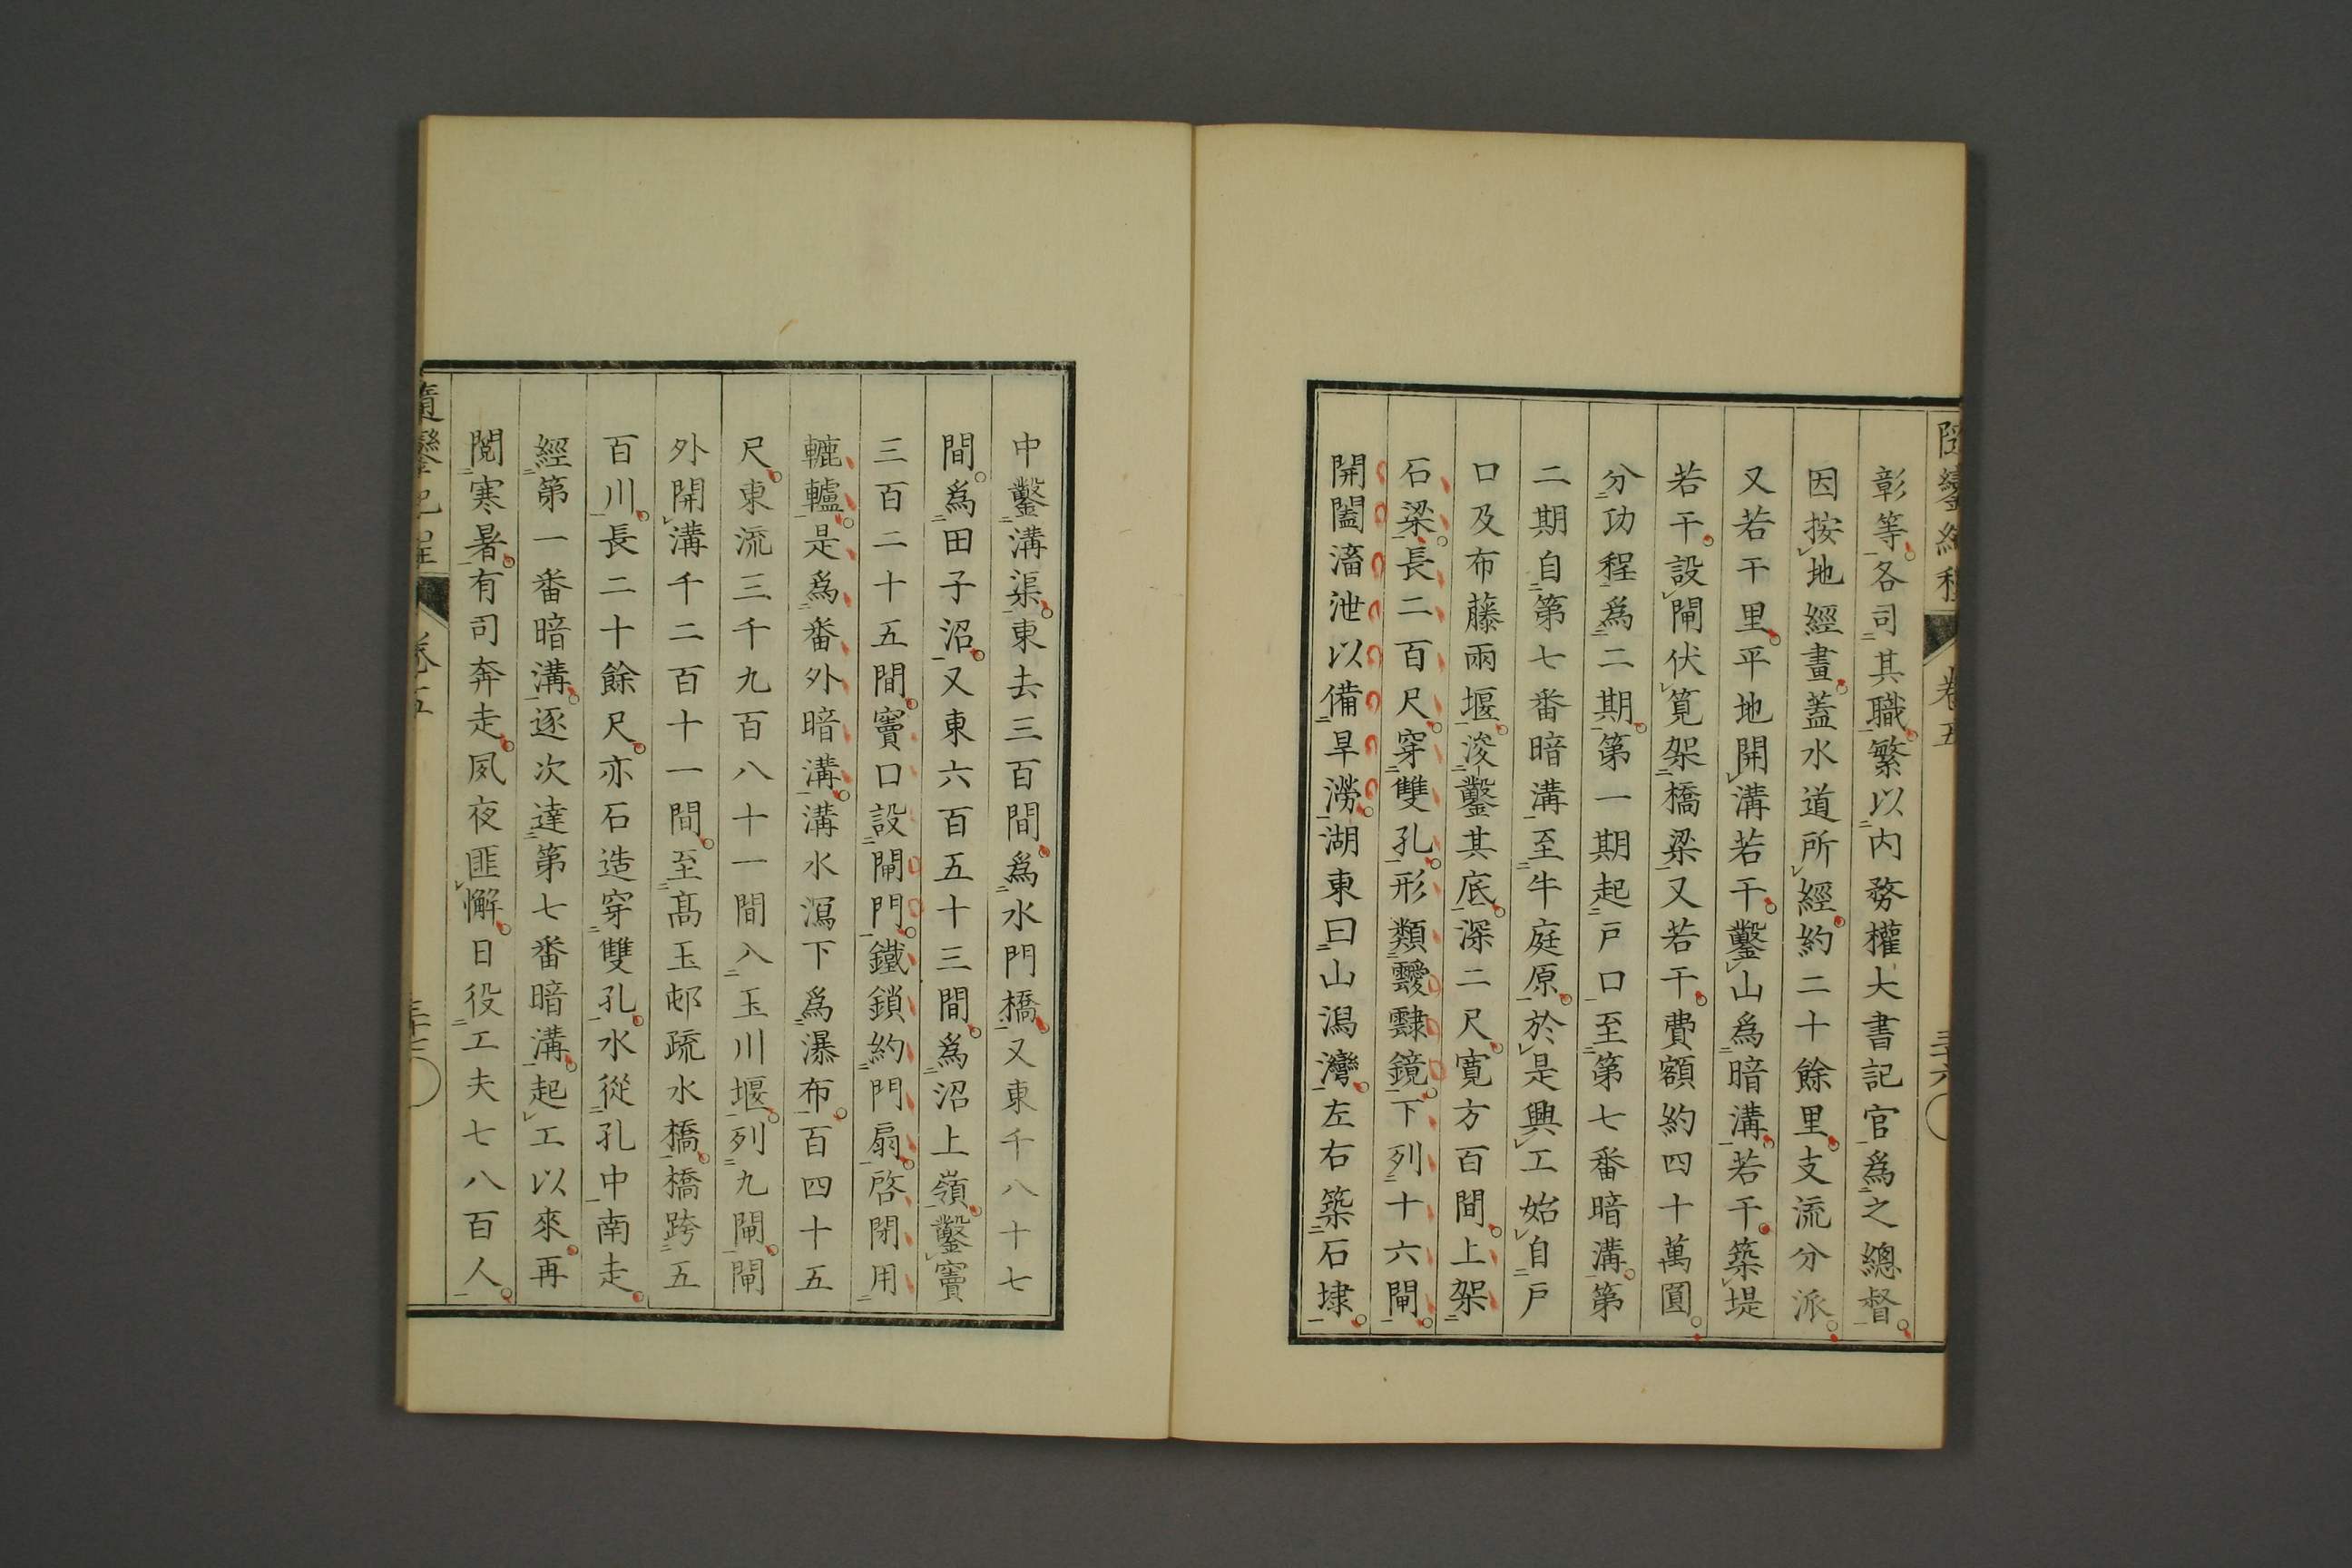 隨鑾紀程 卷五 三十六
彰等各司其職繁以内務權大書記官爲之總督
因按地經畫蓋水道所經約二十餘里支流分派
又若干里平地開溝若干鑿山爲暗溝若干築堤
若干設閘伏筧架橋梁又若干費額約四十萬圓
分功程爲二期第一期起戸口至第七番暗溝第
二期自第七番暗溝至牛庭原於是興工始自戸
口及布藤兩堰浚鑿其底深二尺寛方百間上架
石梁長二百尺穿雙孔形類靉靆鏡下列十六閘
開闔瀦泄以備旱澇湖東曰山潟灣左右築石埭
中鑿溝渠東去三百間爲水門橋又東千八十七
間爲田子沼又東六百五十三間爲沼上嶺鑿竇
三百二十五間竇口設閘門鐵鎖約門扇啓閉用
轆轤是爲番外暗溝溝水瀉下爲瀑布百四十五
尺東流三千九百八十一間入玉川堰列九閘閘
外開溝千二百十一間至髙玉邨疏水橋橋跨五
百川長二十餘尺亦石造穿雙孔水從孔中南走
經第一番暗溝逐次達第七番暗溝起工以來再
閲寒暑有司奔走夙夜匪懈日役工夫七八百人
隨鑾紀程 卷五